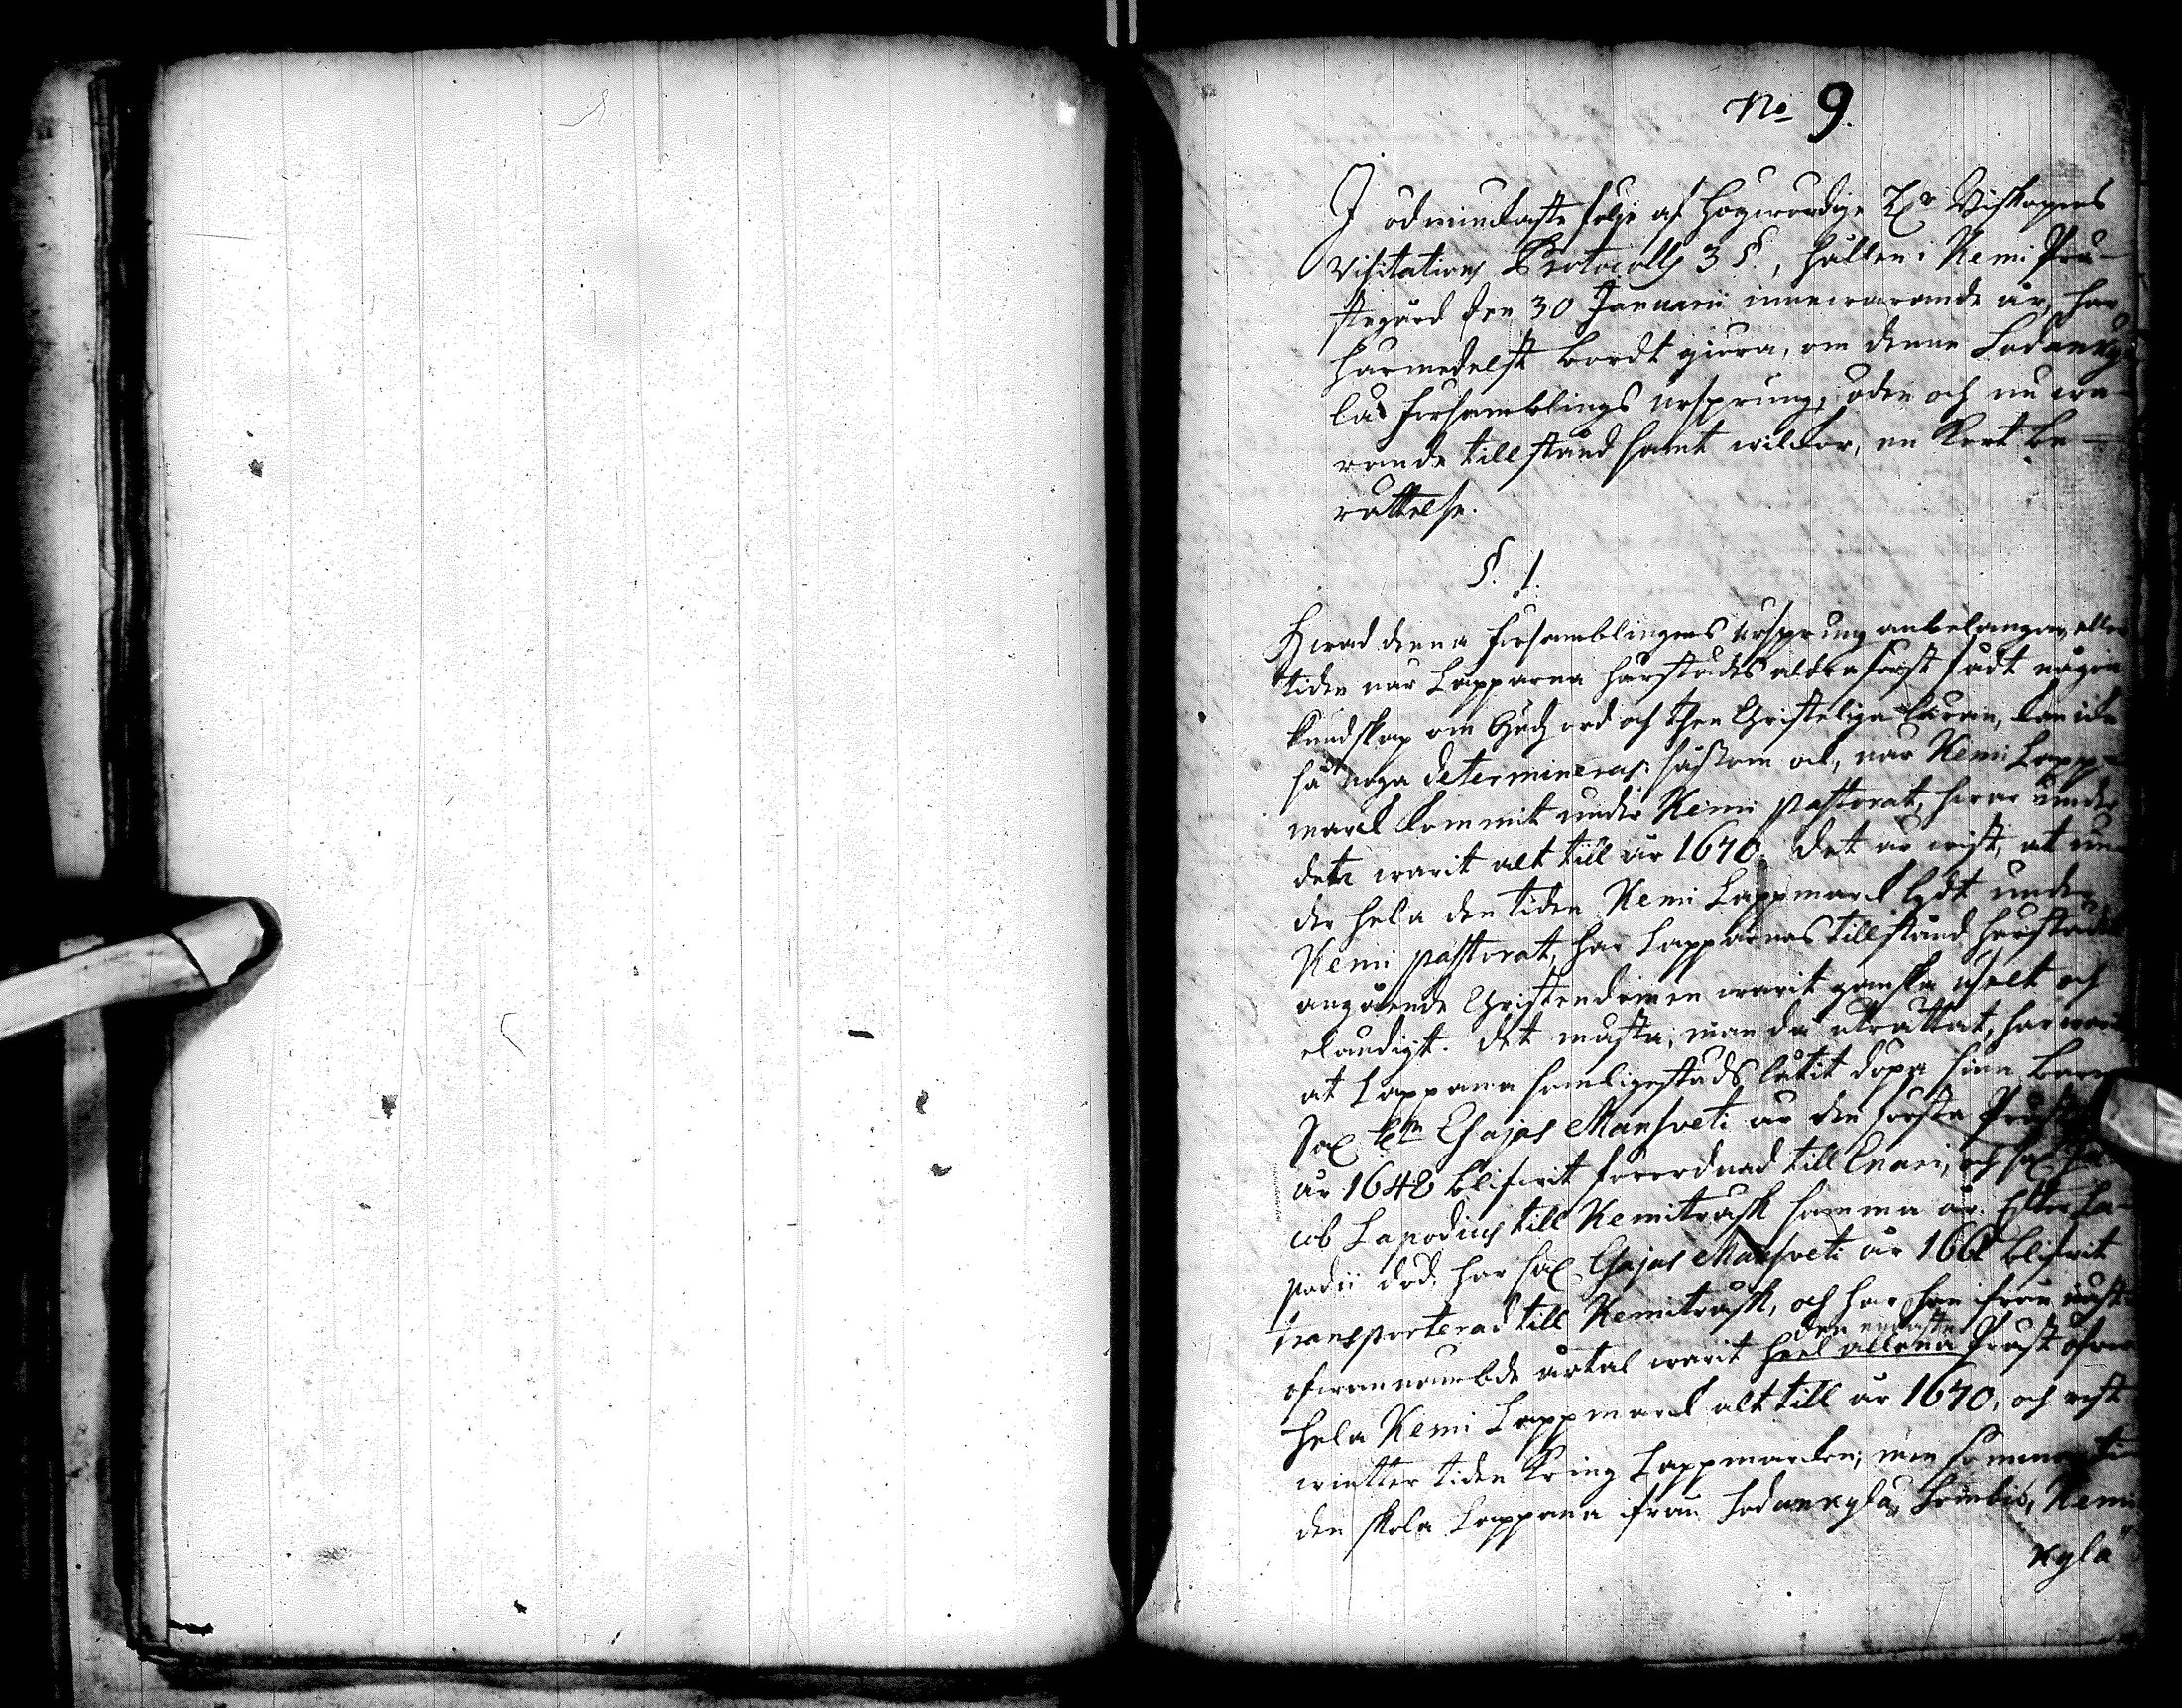 No 9.
I ödmiukaste följe af Högwördige Hr Biskopens
Visitations Protocolls 3 §., hållen i Kemi Prä-
stegård den 30 Januarii innewarande år, har
härmedelst bordt giöra, om denne Sodanky-
lä Forsamblings ursprung, öden och nu wa-
rande tillstånd samt wilkor, en kort be-
rättelse.
§. 1.
Hwad denna Forsamblingens ursprung anbelangar, eller
tiden när Lapparna härstädes aldraförst fådt någon
kundskap om Gudz ord och then Christeliga läran, kan icke
så noga determineras: såsom ock, när Kemi Lapp-
marck kommit under Kemi pastorat, hwar under
dete warit alt till år 1670. Det är wist, at un-
der hela den tiden Kemi Lappmarck lydt under
Kemi pastorat, har Lapparnas tillstånd härstädes
angående Christendomen warit ganska uselt och
eländigt. Det mästa, man då uträttat, har warit
at Lapparna somligestäds låtit döpa sina barn.
Sal. Hr Esajas Mansveti är den första Präst
år 1648 blifwit förordnad till Enari, och Sal. Ja-
cob Lapodius till Kemiträsk samma år. Efter La-
podii död, har Sal. Esajas Mansveti år 1661 blifwit
transporterad till Kemiträsk, och har han ifrån näst-
ofwannambde årtal warit heel allena den endaste Präst öfwer
hela Kemi Lappmarck alt till år 1670, och rest
wintter tiden kring Lappmarcken; men sommar ti-
den skola Lapparna ifrån Sodankylä, Sombio, Kemi
kylä